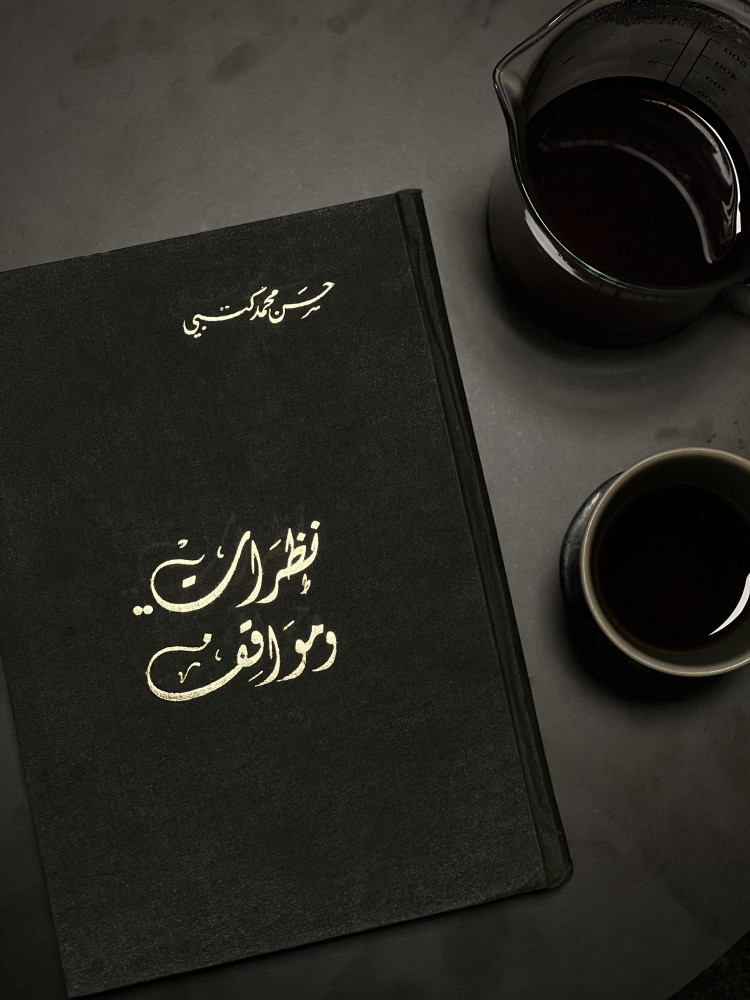 حسن محمد كتبي
نظرات..
ومواقف